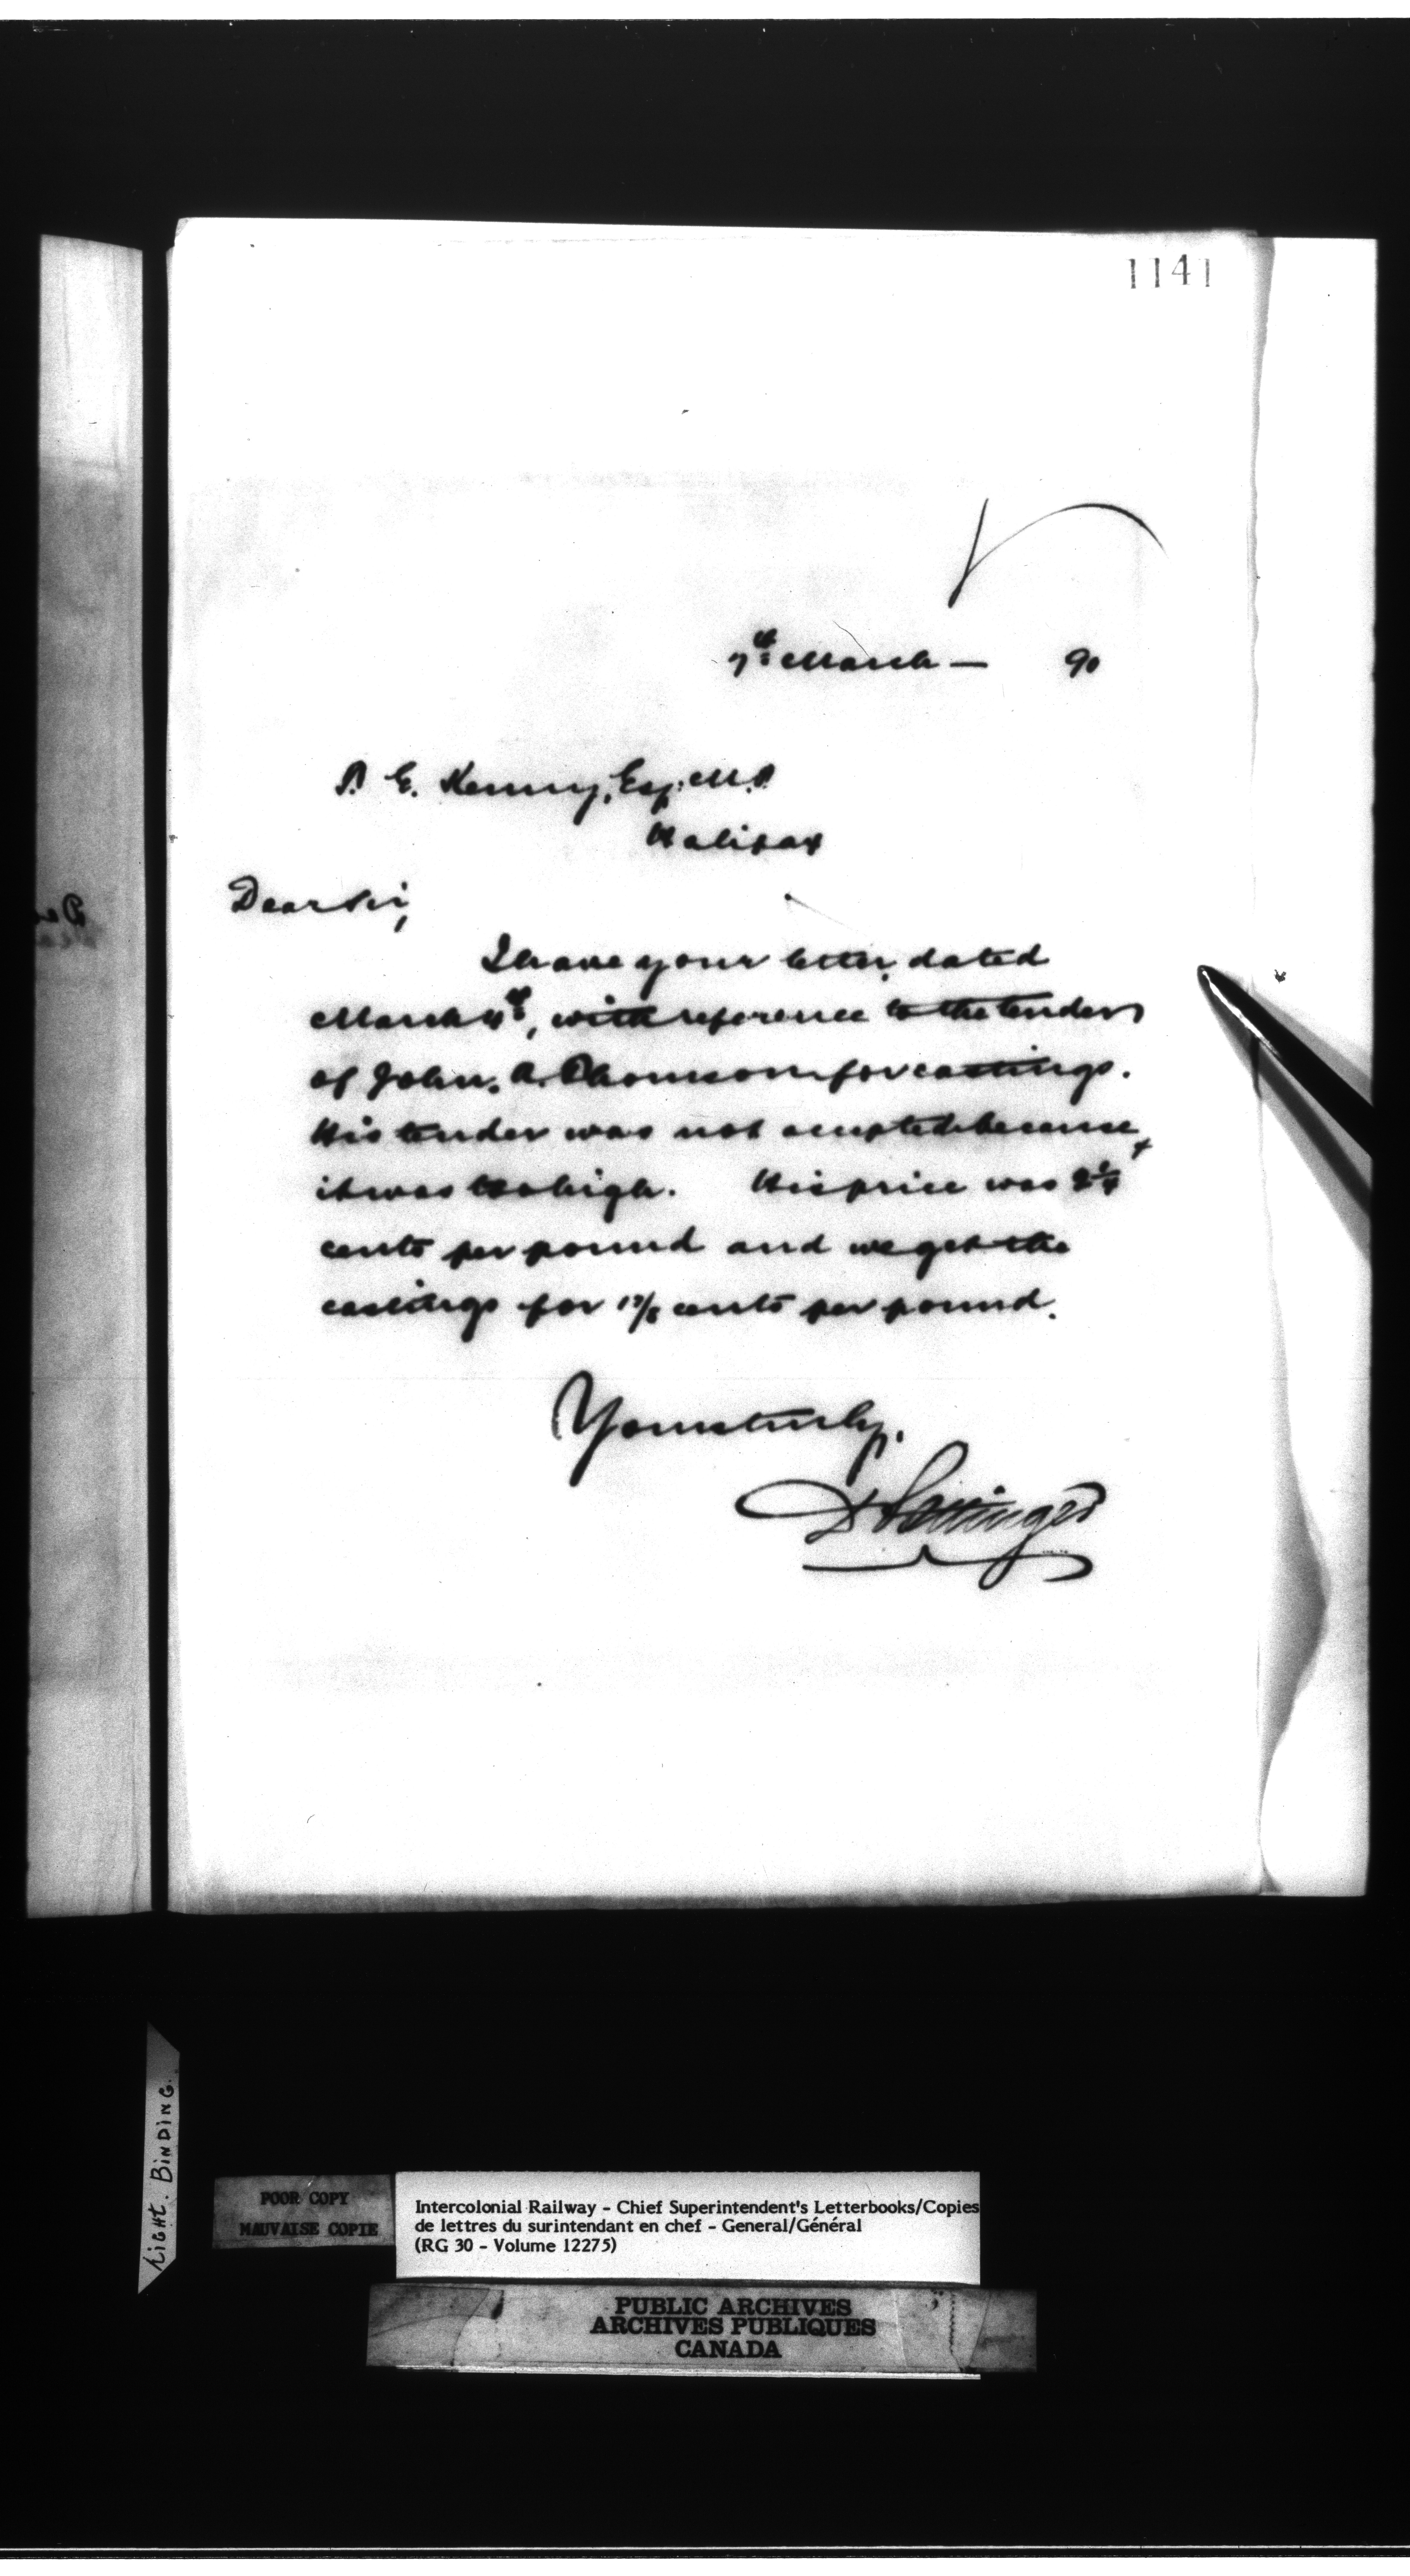 1141
7th March — 90
T. E. Kenny, Esq. M.P.
Halifax
Dear Sir,
I have your letter, dated
March 4th, with reference to the tender
of John. A. Thomson for castings.
His tender was not accepted because
it was too high. His price was 2 1/4
cents per pound and we get the
castings for 1 7/8 cents per pound.
Yours truly,
D Pottinger
Right. Binding.
POOR COPY
MAUVAISE COPIE
Intercolonial Railway - Chief Superintendent's Letterbooks/Copies
de lettres du surintendant en chef - General/Général
(RG 30 - Volume 12275)
PUBLIC ARCHIVES
ARCHIVES PUBLIQUES
CANADA